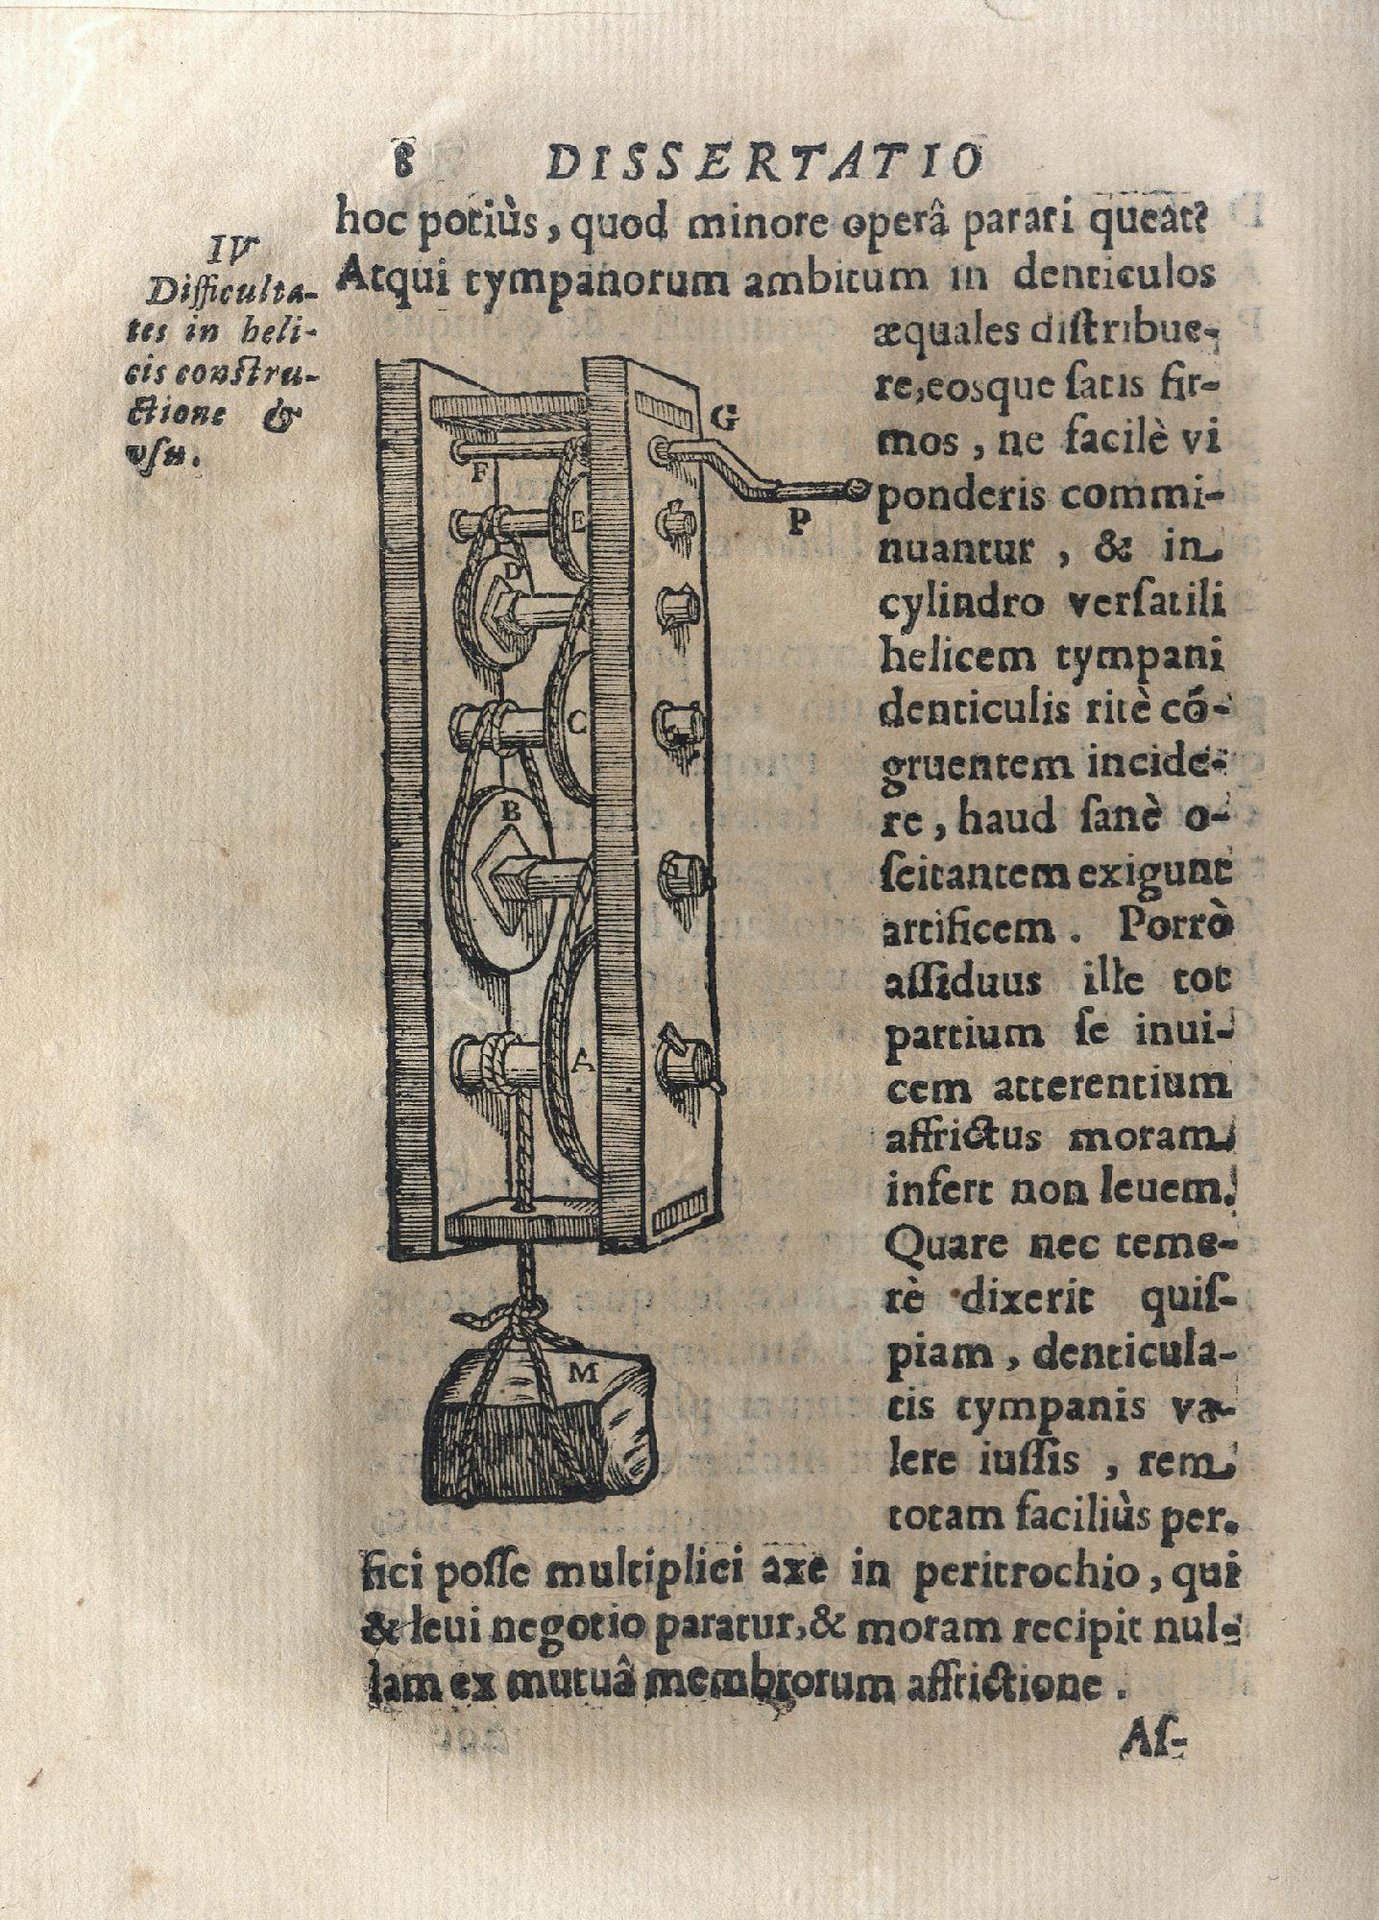 8 DISSERTATIO
hoc potiùs, quod minore operâ parari queat?
Atqui tympanorum ambitum in denticulos
æquales distribue-
re, eosque satis fir-
mos, ne facilè vi
ponderis commi-
nuantur, & in
cylindro versatili
helicem tympani
denticulis ritè cõ-
gruentem incide-
re, haud sanè o-
scitantem exigunt
artificem. Porrò
assiduus ille tot
partium se inui-
cem atterentium
affrictus moram
infert non leuem.
Quare nec teme-
rè dixerit quis-
piam, denticula-
tis tympanis va-
lere iussis, rem
totam faciliùs per.
fici posse multiplici axe in peritrochio, qui
& leui negotio paratur, & moram recipit nul-
lam ex mutuâ membrorum affrictione.
As-
IV
Difficulta-
tes in heli-
cis constru-
ctione &
vsu.
G
F
P
E
D
C
B
A
M